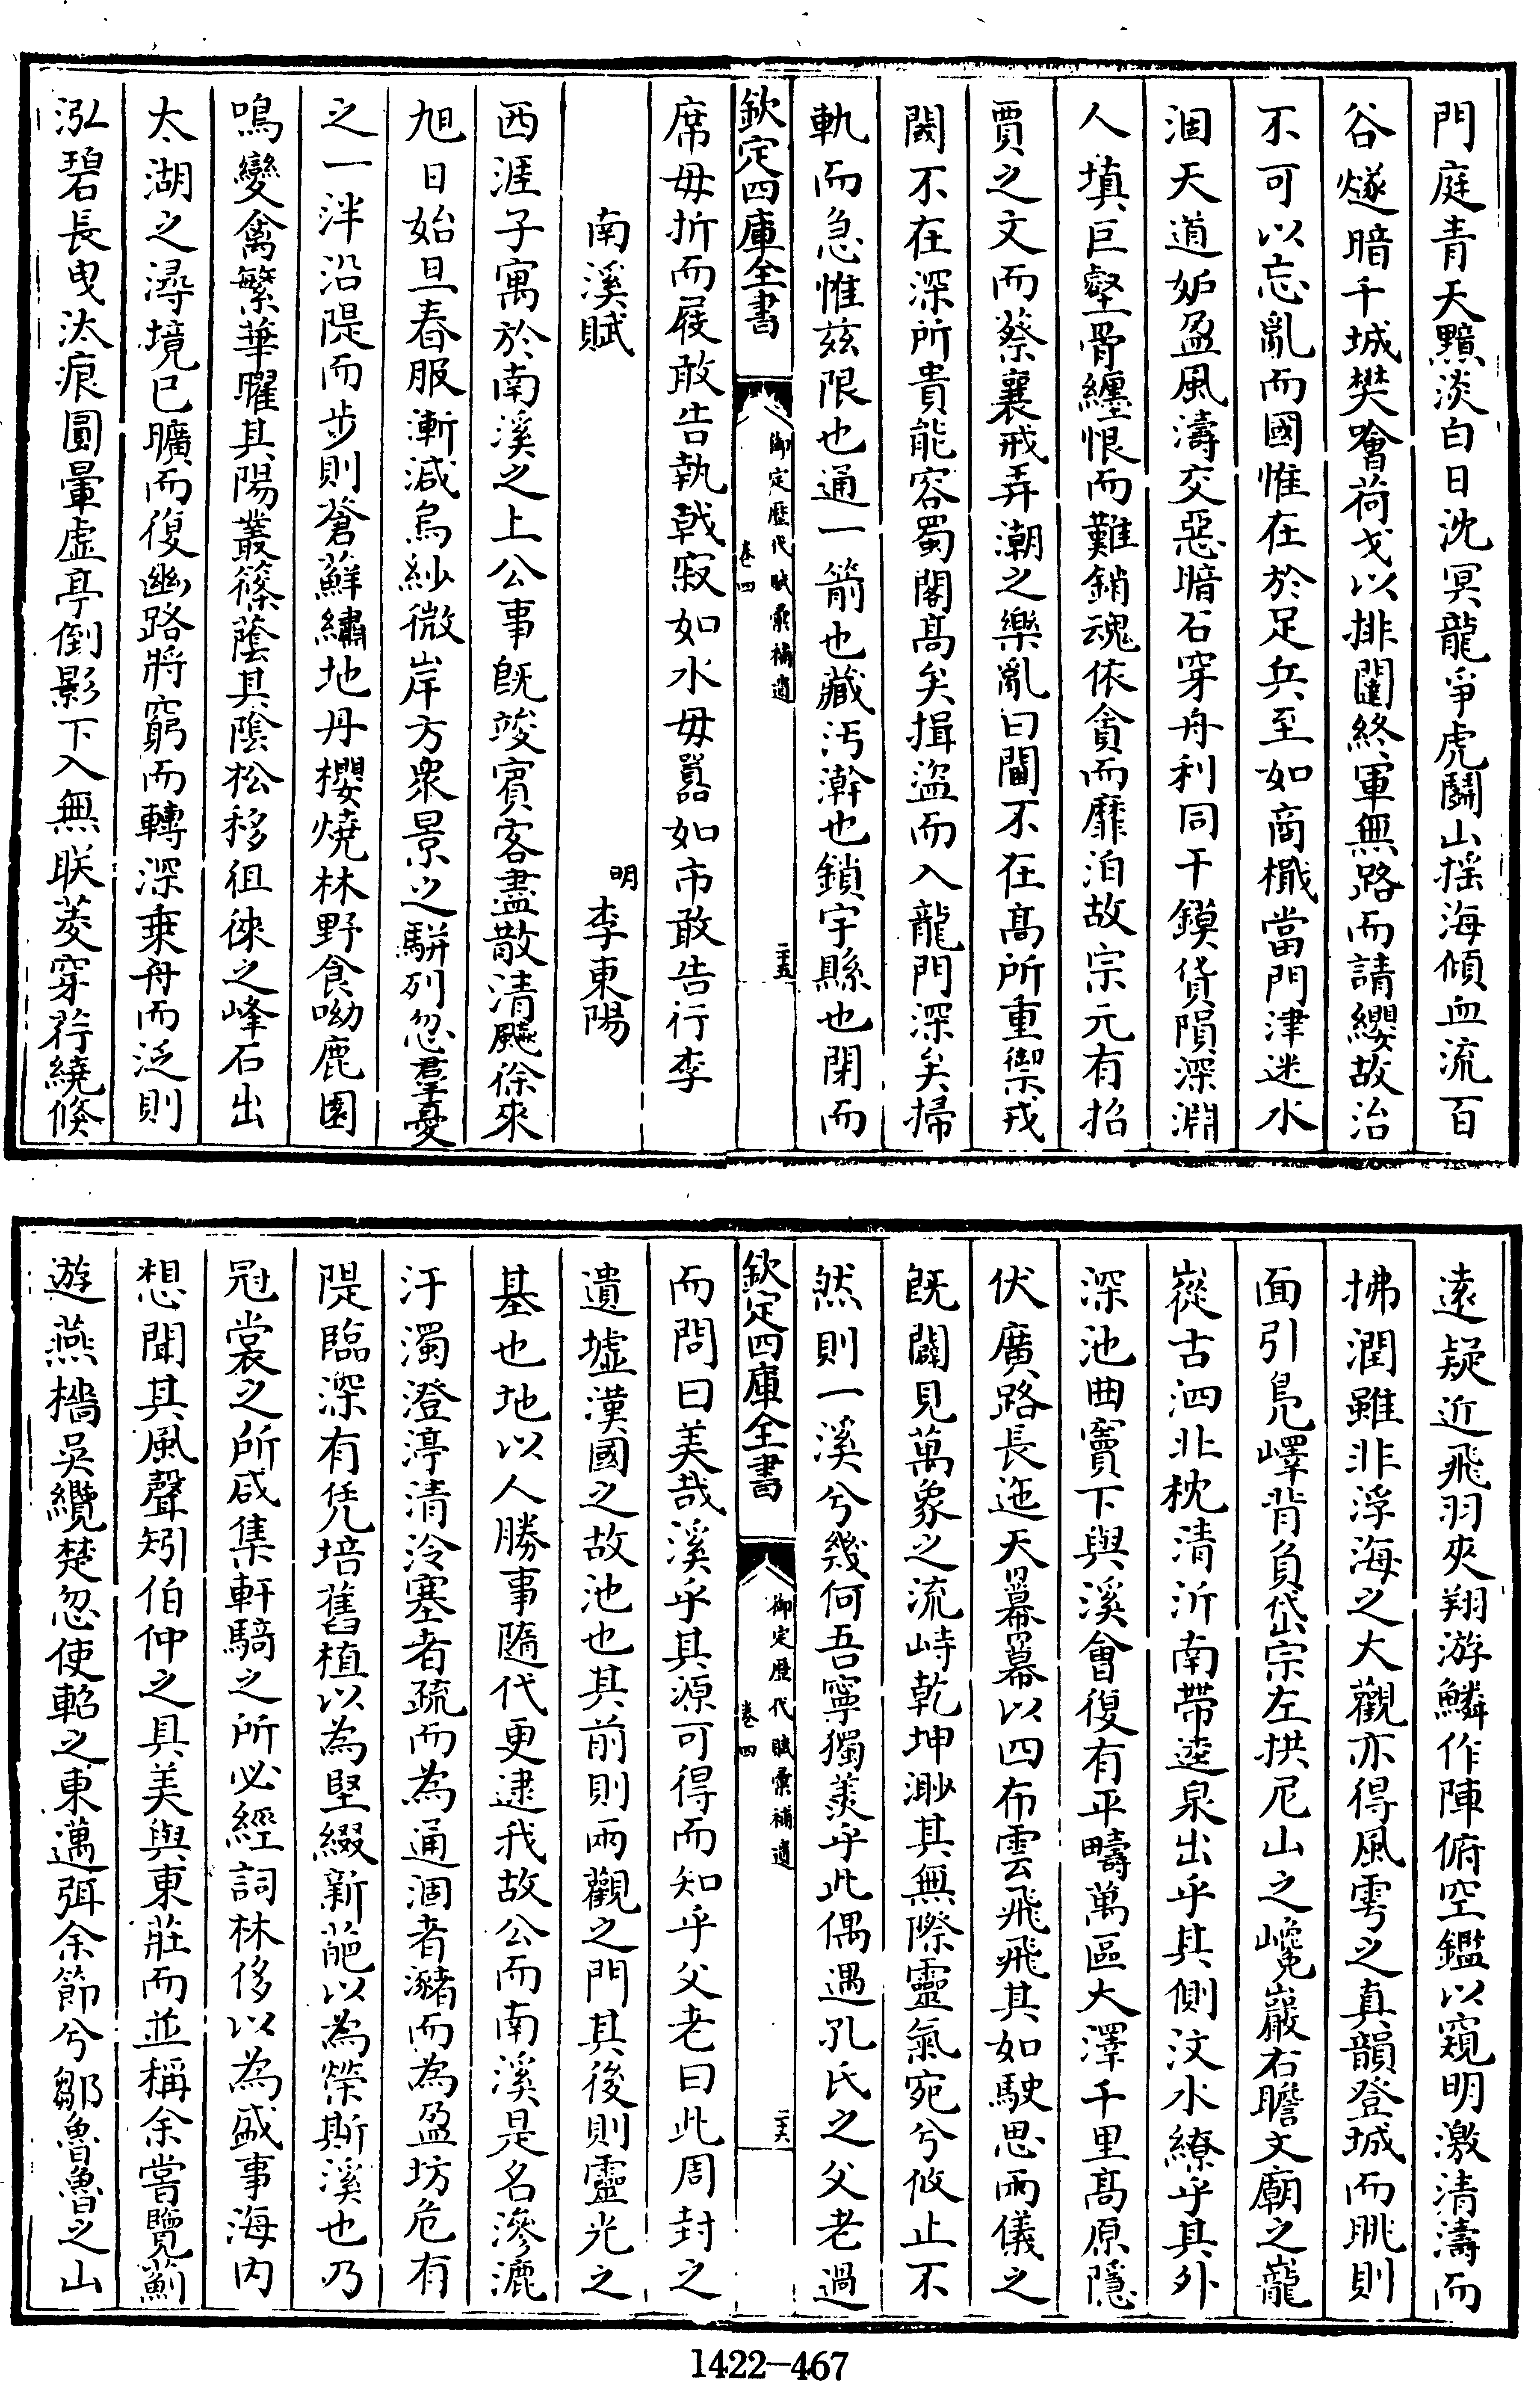 門庭青天黯淡白日沈冥龍爭虎鬭山揺海傾血流百
谷燧暗千城樊噲荷戈以排闥終軍無路而請纓故治
不可以忘亂而國惟在於足兵至如商檝當門津迷水
涸天道妬盈風濤交惡暗石穿舟利同干鏌貨隕深淵
人填巨壑骨纏恨而難銷魂依貪而靡泊故宗元有招
賈之文而蔡襄戒弄潮之樂亂曰閫不在高所重禦戎
閾不在深所貴能容蜀閣髙矣揖盜而入龍門深矣掃
軌而急惟兹限也通一箭也藏汚澣也鎖宇縣也閉而
欽定四庫全書
御定歴代賦彚補遺
卷四
二十五
席毋折而屐敢告執戟寂如水毋囂如市敢告行李
南溪賦
明 李東陽
西涯子寓於南溪之上公事既竣賓客盡散清飈徐來
旭日始旦春服漸減烏紗微岸方衆景之駢列忽羣憂
之一泮沿隄而步則蒼蘚繡地丹櫻燒林野食呦鹿園
鳴變禽繁華曜其陽叢篠蔭其陰松移徂徠之峰石出
太湖之潯境已曠而復幽路將窮而轉深乗舟而泛則
泓碧長曵汰痕圓暈虚亭倒影下入無朕菱穿荇繞倐
遠疑近飛羽夾翔游鱗作陣俯空鑑以窺明激清濤而
拂潤雖非浮海之大觀亦得風雩之真韻登城而眺則
面引鳬嶧背負岱宗左拱尼山之巉巖右瞻文廟之巃
嵷古泗北枕清沂南帶逵泉出乎其側汶水繚乎其外
深池曲竇下與溪會復有平疇萬區大澤千里髙原隱
伏廣路長迤天羃羃以四布雲飛飛其如駛思兩儀之
既闢見萬象之流峙乾坤渺其無際靈氣宛兮攸止不
然則一溪兮幾何吾寧獨羨乎此偶遇孔氏之父老過
欽定四庫全書
御定歴代賦彚補遺
卷四
二十六
而問曰美哉溪乎其源可得而知乎父老曰此周封之
遺墟漢國之故池也其前則兩觀之門其後則靈光之
基也地以人勝事隨代更逮我故公而南溪是名滲漉
汙濁澄渟清泠塞者疏而為通涸者瀦而為盈坊危有
隄臨深有凭培舊植以為堅綴新葩以為榮斯溪也乃
冠裳之所咸集軒騎之所必經詞林侈以為盛事海内
想聞其風聲矧伯仲之具美與東莊而並稱余嘗覽薊
遊燕檣吳纜楚忽使軺之東邁弭余節兮鄒魯魯之山
1422—467